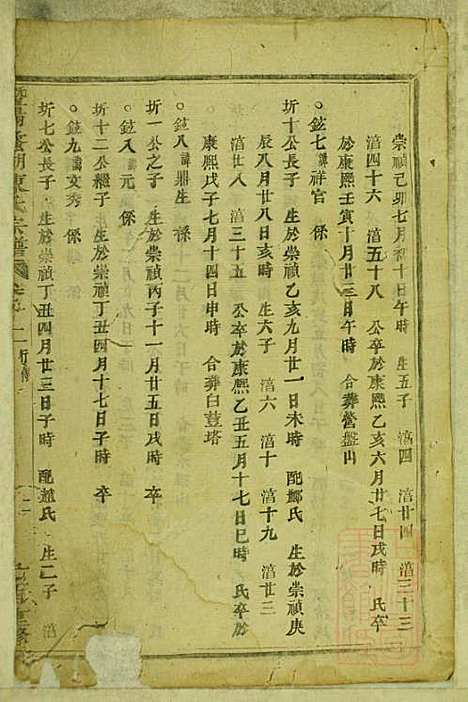 崇禎己卯七月初十日午時 生五子 湻四 湻廿四 湻三十三
湻四十六 湻五十八 公卒於康熙乙亥六月廿七日戌時 氏卒
於康熙壬寅十月廿三日午時 合葬營盤山
鉉七諱祥官 係
圻十公長子 生於崇禎乙亥九月廿一日未時 配鄭氏 生於崇禎庚
辰八月廿八日亥時 生六子 湻六 湻十 湻十九 湻廿三
湻廿八 湻三十五 公卒於康熙乙丑五月十七日巳時 氏卒於
康熙戊子七月十四日申時 合葬白荳塔
鉉八諱鼎生 係
圻一公之子 生於崇禎丙子十一月廿五日戌時 卒
鉉八諱元 係
圻十二公繼子 生於崇禎丁丑四月十七日子時 卒
鉉九諱文秀 係
圻七公長子 生於崇禎丁丑四月廿三日子時 配趙氏 生二子 湻
宗譜